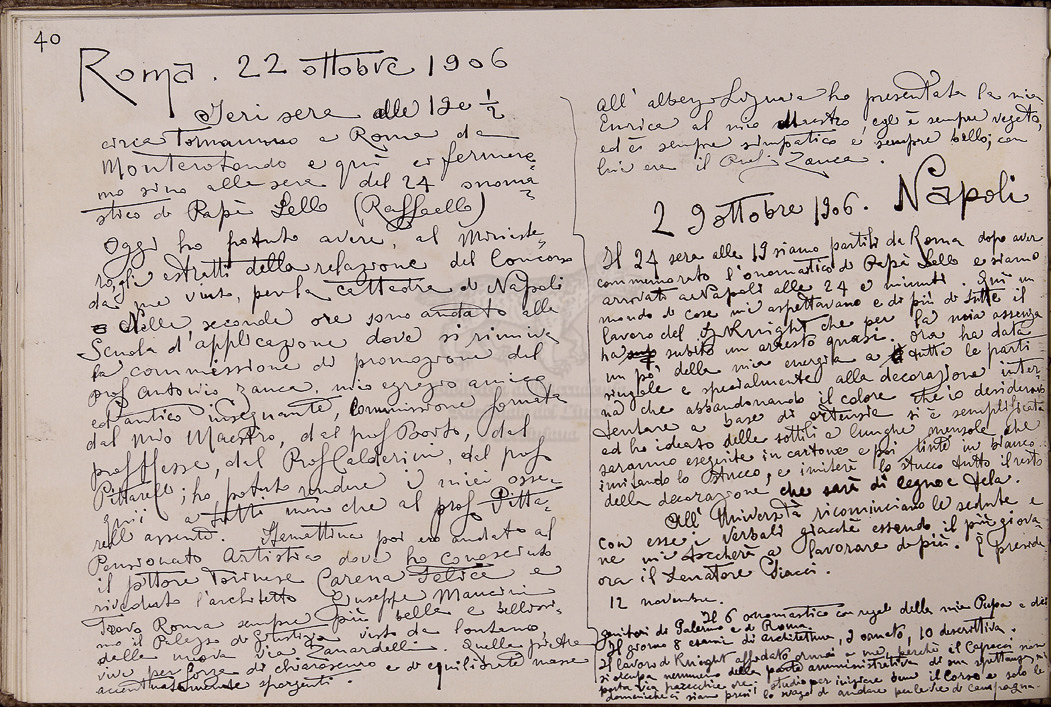 40
Roma. 22 ottobre 1906
Ieri sera alle 12 e 1/2
circa tornammo a Roma da
Monterotondo e quì ci fermere=
mo sino alla sera del 24 onoma=
stico di Papà Lello (Raffaello)
Oggi ho potuto avere, al Ministe=
ro, gli estratti della relazione del Concorso
da me vinto, per la cattedra di Napoli
Nelle seconde ore sono andato alla
Scuola d'applicazione dove si riuniva
la commissione di promozione del
prof Antonio Zanca, mio egregio amico
ed antico insegnante, commissione formata
dal mio Maestro, dal prof Borto, dal
prof, dal Prof Calderini, dal prof
Pittarelli; ho potuto rendere i miei osse=
quii a tutti meno che al prof. Pitta=
relli assente. Stamattina poi ero andato al
Pensionato Artistico dove ho conosciuto
il pittore Torinese Carena Felice e
riveduto l'architetto Giuseppe Mancini
Trovo Roma sempre più bella e bellissi=
mo il Palazzo di Giustizia visto da lontano
dalla nuova Via Zanardelli. Quelle pietre
vive per forza di chiaroscuro e di equilibrate masse
accentuatamente sporgenti.
all'albergo Liguria ho presentata la mia
Enrica al mio Maestro, egli è sempre vegeto,
ed è sempre simpatico e sempre bello; con
lui era il Prof. Zanca.
29 ottobre 1906. Napoli
Il 24 sera alle 19 siamo partiti da Roma dopo aver
commemorato l'onomastico di Papà Lello e siamo
arrivati a Napoli alle 24 e minuti. Quì un
mondo di cose mi aspettavano e di più di tutte il
lavoro del Knight che per la mia assenza
ha subito un arresto quasi. Ora ha data
un pò della mia energia a tutte le parti=
cole e specialmente alla decorazione inter=
na che abbandonando il colore che io desideravo
tentare a base di ortensie si è semplificata
ed ho ideato delle sottili e lunghe mensole che
saranno eseguite in cartone e poi tinte in bianco
imitando lo stucco, e imiterà lo stucco tutto il resto
della decorazione che sarà di legno e tela.
All'Università ricominciano le sedute e
con esse i verbali giacchè essendo il più giova=
ne mi toccherà a lavorare di più. È preside
ora il Senatore Ciacci.
12 novembre.
Il 6 onomastico con regali della mia Pupa e dei
genitori di Palermo e di Roma.
Il giorno 8 esami di architettura, 9 ornato, 10 descrittiva.
Il lavoro di Knight affidato ormai a me, perchè il Capocci non
si occupa nemmeno della parte amministrativa di sua spettanza, mi
porta via parecchie ore. Studio per iniziare bene il Corso e solo le
domeniche ci siamo presi lo svago di andare per le vie di campagna.